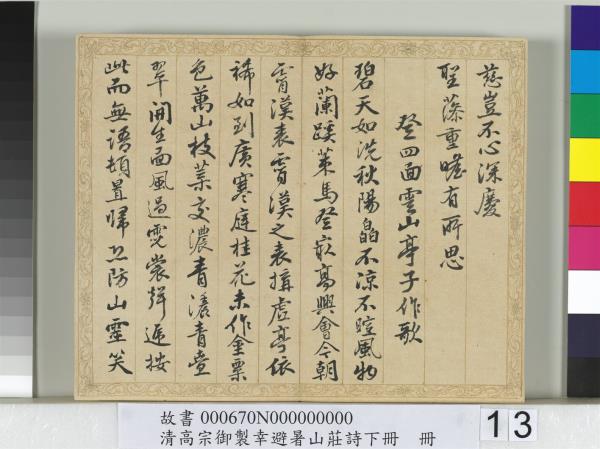 慈豈不心深慶
聖藻重瞻有所思
登四面雲山亭子作歌
碧天如洗秋陽皛不涼不暄風物
好蘭蹊策馬登嶔高興會今朝
霄漢表霄漢之表構虛亭依
稀如到廣寒庭桂花未作金粟
色萬山枝葉交濃青濃青疊
翠開生面風過霓裳聲遞按
此而無語頓置歸恐防山靈笑
故書 000670N000000000
清高宗御製幸避暑山莊詩下冊 冊
13